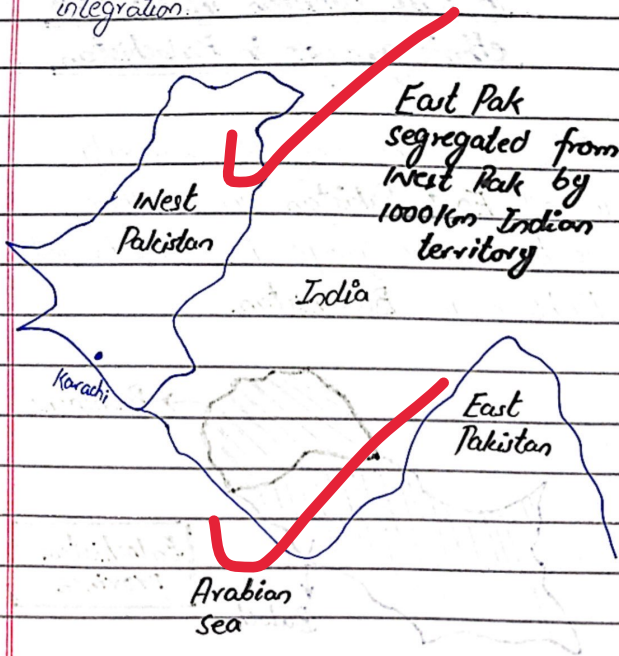 integration.
East Pak
segregated from
West Pak by
1000Km Indian
territory
West
Pakistan
India
Karachi
East
Pakistan
Arabian
sea